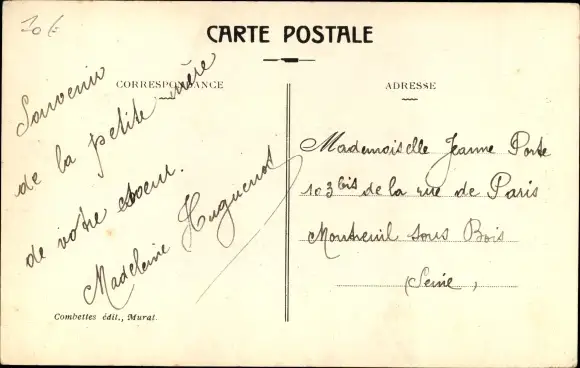 10 f
CARTE POSTALE
CORRESPONDANCE
Souvenir
de la petite mère
de votre coeur.
Madeleine Huguenot
Combettes édit., Murat.
ADRESSE
Mademoiselle Jeanne Porte
103 bis de la rue de Paris
Montreuil sous Bois
(Seine)